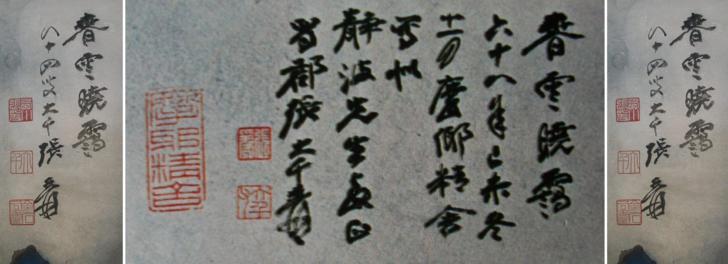 春雲曉靄
八十四叟大千張爰
春雲曉靄
六十八年己未冬
十一月摩耶精舍
寫似
靜波先生教正
蜀郡張大千爰
摩耶精舍
春雲曉靄
八十四叟大千張爰